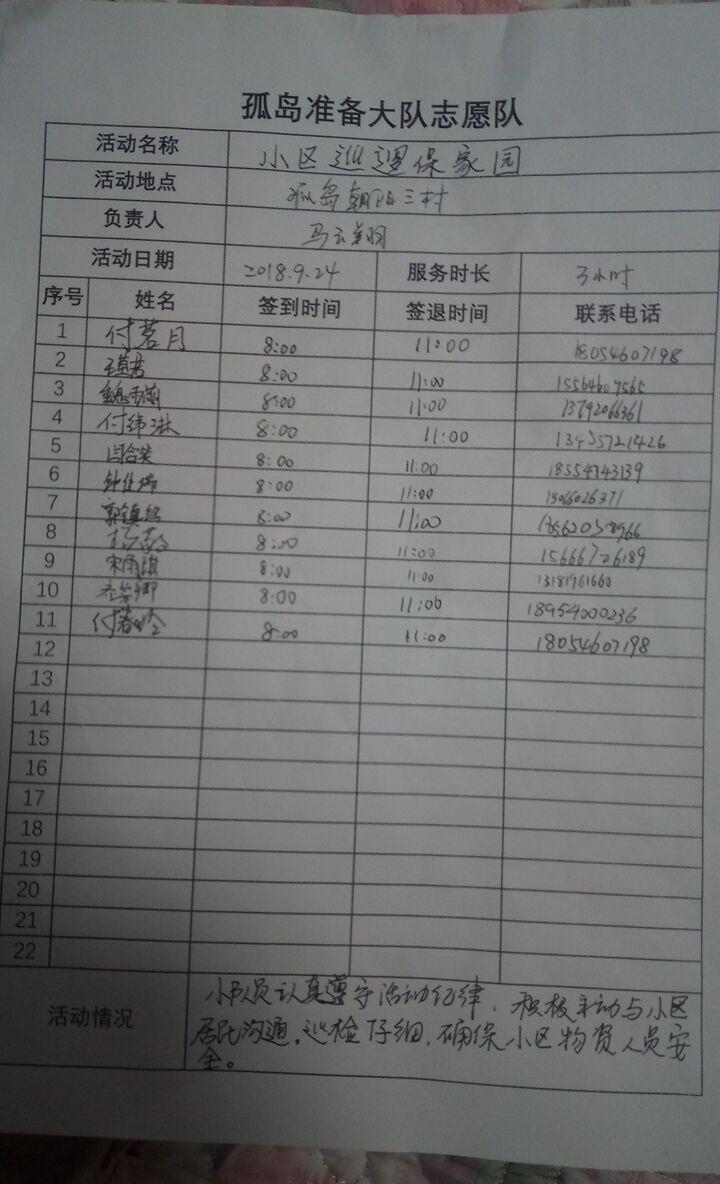 孤岛准备大队志愿队
活动名称 小区巡逻保家园
活动地点 孤岛朝阳三村
负责人 马云
活动日期 2018.9.24 服务时长 3小时
序号 姓名 签到时间 签退时间 联系电话
1 付茗月 8:00 11:00 18054607198
2 8:00 11:00 15564607565
3 8:00 11:00 13792066361
4 付纬琳 8:00 11:00
5 8:00 11:00 18554743139
6 钟佳 8:00 11:00 15066026371
7 郭镇 8:00 11:00
8 8:00 11:00 15666726189
9 宋雨祺 8:00 11:00 13181961660
10 8:00 11:00 18954000236
11 付茗 8:00 11:00 18054607198
12
13
14
15
16
17
18
19
20
21
22
活动情况 小队员认真遵守活动纪律，积极主动与小区
居民沟通，巡检仔细，确保小区物资人员安
全。